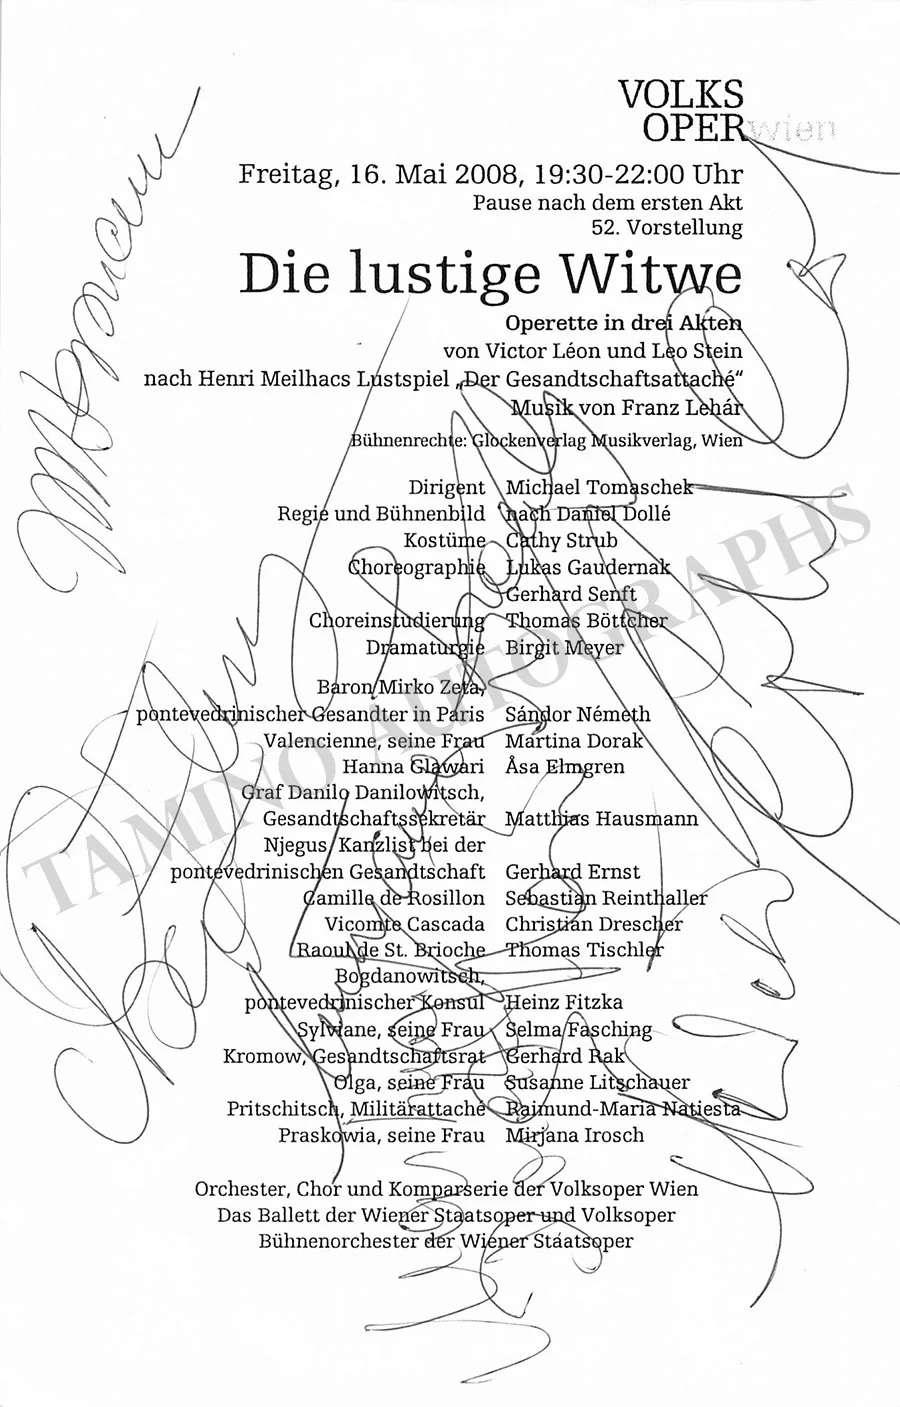 VOLKS
OPER wien
Freitag, 16. Mai 2008, 19:30-22:00 Uhr
Pause nach dem ersten Akt
52. Vorstellung
Die lustige Witwe
Operette in drei Akten
von Victor Léon und Leo Stein
nach Henri Meilhacs Lustspiel „Der Gesandtschaftsattaché“
Musik von Franz Lehár
Bühnenrechte: Glockenverlag Musikverlag, Wien
Dirigent Michael Tomaschek
Regie und Bühnenbild nach Daniel Dollé
Kostüme Cathy Strub
Choreographie Lukas Gaudernak
Gerhard Senft
Choreinstudierung Thomas Böttcher
Dramaturgie Birgit Meyer
Baron Mirko Zeta,
pontevedrinischer Gesandter in Paris Sándor Németh
Valencienne, seine Frau Martina Dorak
Hanna Glawari Åsa Elmgren
Graf Danilo Danilowitsch,
Gesandtschaftssekretär Matthias Hausmann
Njegus, Kanzlist bei der
pontevedrinischen Gesandtschaft Gerhard Ernst
Camille de Rosillon Sebastian Reinthaller
Vicomte Cascada Christian Drescher
Raoul de St. Brioche Thomas Tischler
Bogdanowitsch,
pontevedrinischer Konsul Heinz Fitzka
Sylviane, seine Frau Selma Fasching
Kromow, Gesandtschaftsrat Gerhard Rak
Olga, seine Frau Susanne Litschauer
Pritschitsch, Militärattaché Raimund-Maria Natiesta
Praskowia, seine Frau Mirjana Irosch
Orchester, Chor und Komparserie der Volksoper Wien
Das Ballett der Wiener Staatsoper und Volksoper
Bühnenorchester der Wiener Staatsoper
TAMINO AUTOGRAPHS